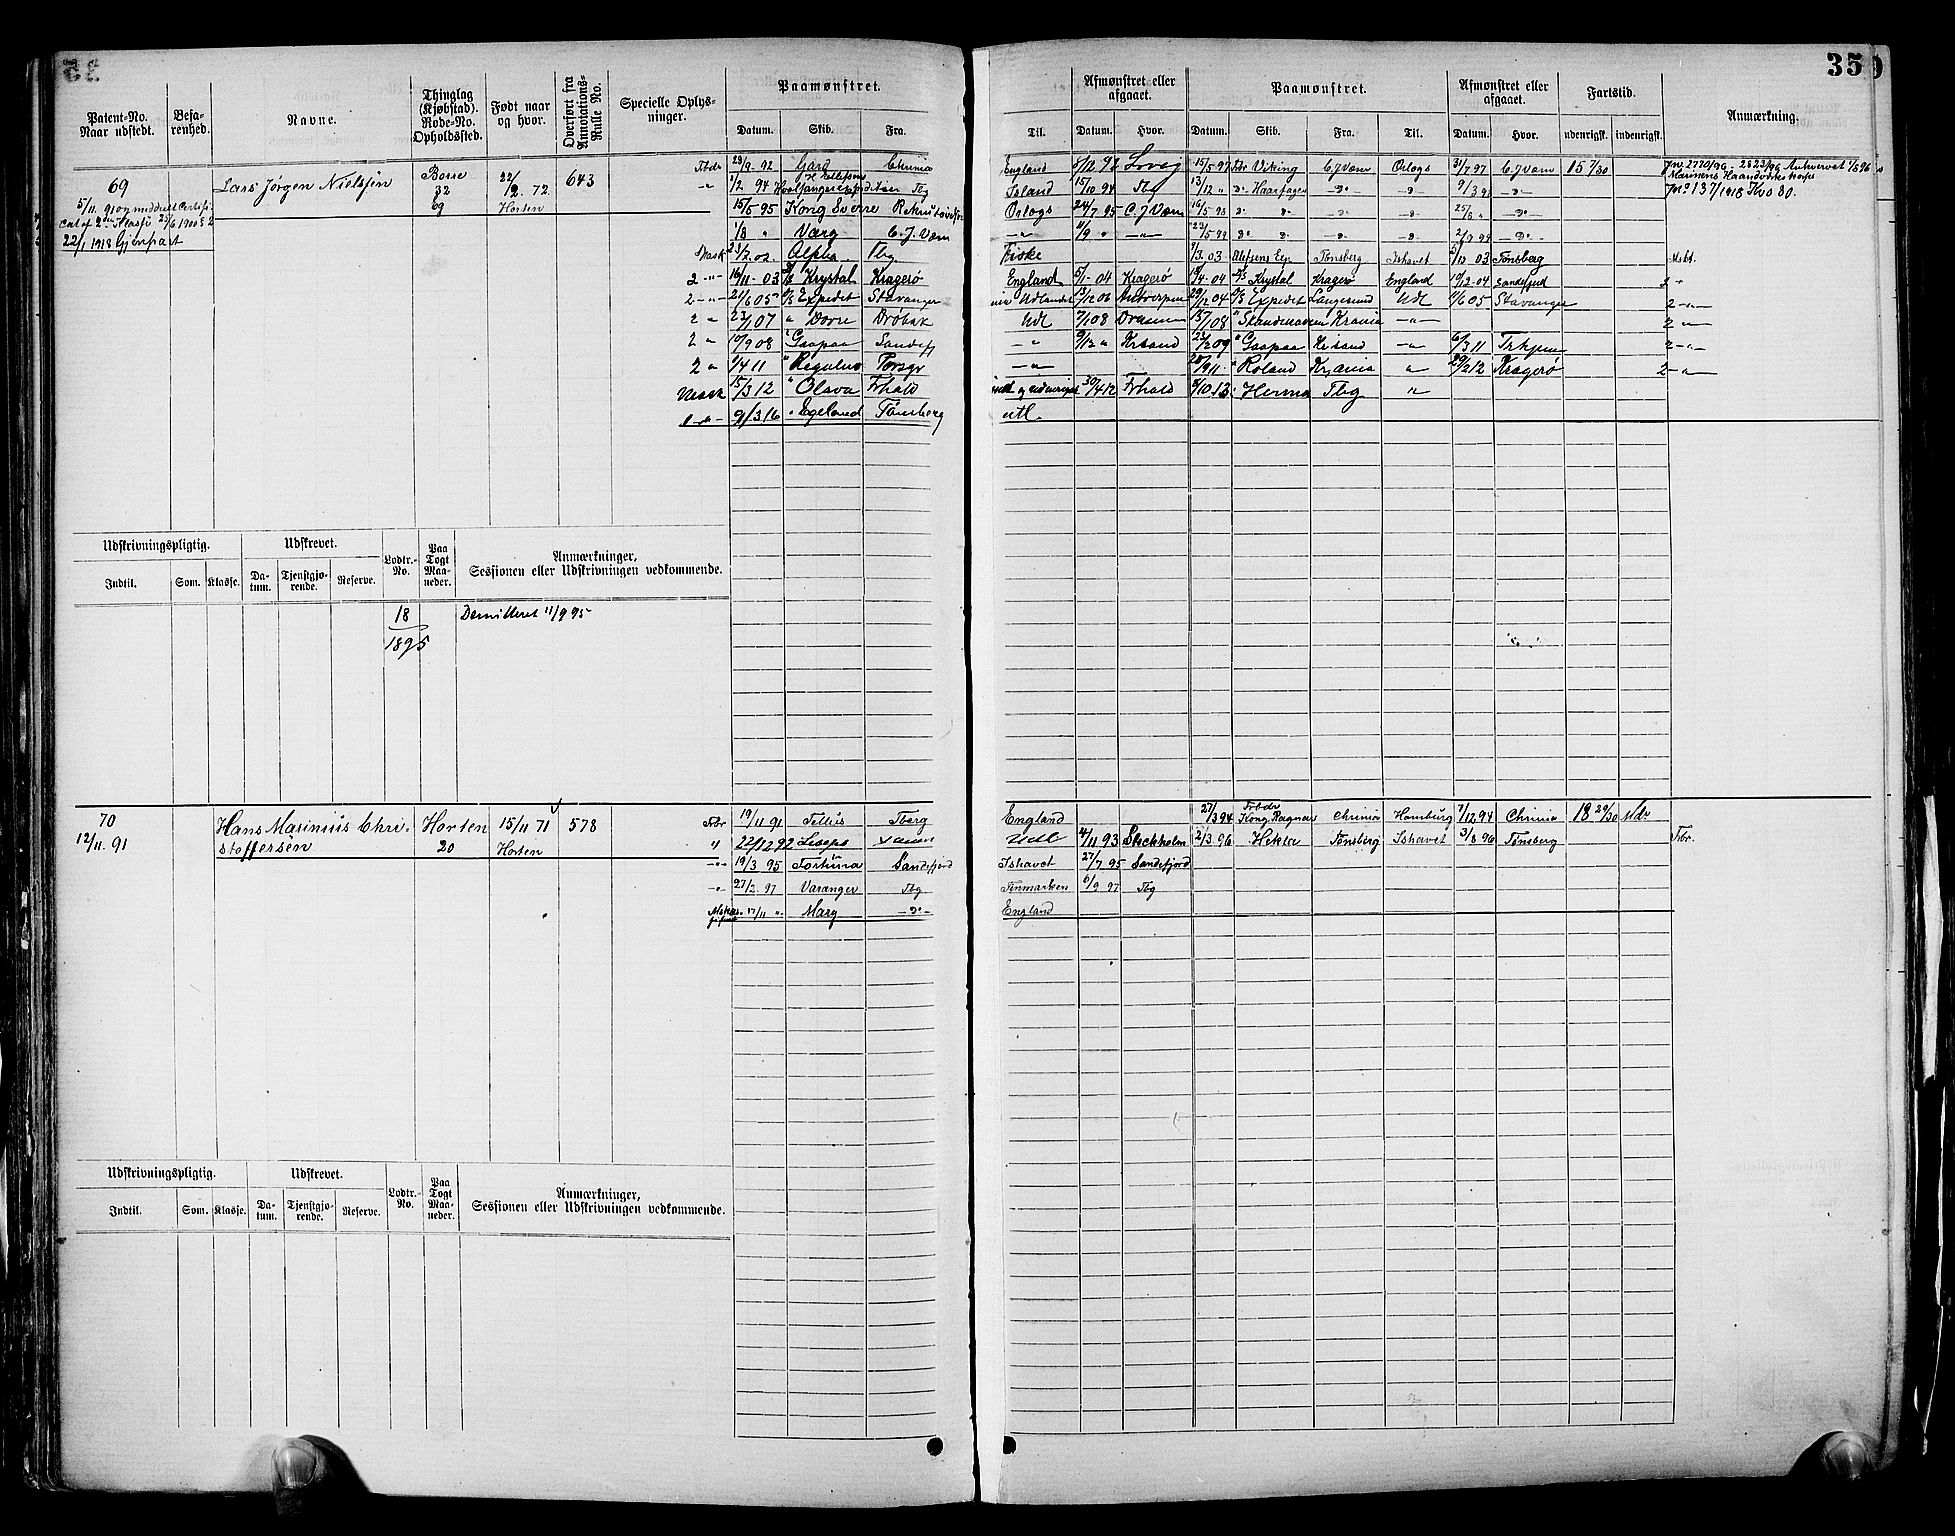 35
Patent-No. Naar udstedt.
Befarenhed.
Navne.
Thinglag (Kjøbstad). Rode-No. Opholdssted.
Født naar og hvor.
Overført fra Annotations-Rulle No.
Specielle Oplysninger.
Paamønstret.
Datum. Skib. Fra. Til.
Afmønstret eller afgaaet.
Datum. Hvor.
Paamønstret.
Datum. Skib. Fra. Til.
Afmønstret eller afgaaet.
Datum. Hvor.
Fartstid.
udenrigsk. indenrigsk.
Anmærkning.
69
Lars Jørgen Nielsen
Borre
32
69
22/2 72
Horten
643
22/1 1918 Gjenpart
23/9 92 Gard Chrinia England 5/12 92 15/5 97 Viking C.J. Værn Orlogs 31/7 97 C.J. Værn 15 7/30
1/2 94 Tbg Island 15/10 94 Tbg 13/12 " Do Haarfager -Do- -Do- 9/3 98 -Do-
15/5 95 Kong Sverre Orlogs 24/7 95 C.J. Værn 16/5 98 25/8 " -Do-
1/8 " Varg C.J. Værn -"- 11/9 " -"- 23/5 99 2/9 99 -Do-
Alpha Tbg Fiske 9/3 03 Tønsberg Ishavet 5/10 03 Tønsberg
16/11 03 Krystal Kragerø England 5/1 04 Kragerø 18/4 04 Krystal Kragerø England 19/12 04 Sandefjd
21/6 05 Expedit Stavanger Udlandet 13/12 06 Antwerpen 29/12 04 Expedit Langesund Udl 11/6 05 Stavanger
23/1 07 Dovre Drøbak Udl 7/1 08 15/1 08 Skandinavien Krania -"-
10/9 08 Gaapaa Sandefj -"- 9/12 " Krsand 23/2 09 Gaapaa Krsand -"- 6/3 11 Trhjem
4/4 11 Regulus Porsgr -"- 20/9 11 Roland Krania " 29/2 12 Kragerø
15/3 12 Olava Frhald 30/4 12 Frhald 8/10 13 Herma Tbg "
9/3 16 Egeland Tønsberg utl.
No 137/1918 Kr. 0.80.
Udskrivningspligtig.
Indtil. Som. Klasse.
Udskrevet.
Datum. Tjenstgjørende. Reserve.
Lodtr.-No.
Paa Togt Maaneder.
Anmærkninger, Sessionen eller Udskrivningen vedkommende.
18
1895
Demitteret 11/9 95
70
12/11 91
Hans Marinius Christoffersen
Horten
20
15/11 71
Horten
578
19/11 91 Tellus Tberg England 27/3 94 Kong Ragnar Chrinia Hamburg 7/12 94 Chrinia 18 29/30 Udr
22/12 92 Udl 4/11 93 Stockholm 2/3 96 Hekla Tønsberg Ishavet 3/8 96 Tønsberg Tbr.
19/3 95 Fortuna Sandefjord Ishavet 27/7 95 Sandefjord
27/2 97 Varanger Tbg Finmarken 6/9 97 Tbg
17/11 " Marg -Do- England
Udskrivningspligtig.
Indtil. Som. Klasse.
Udskrevet.
Datum. Tjenstgjørende. Reserve.
Lodtr.-No.
Paa Togt Maaneder.
Anmærkninger, Sessionen eller Udskrivningen vedkommende.